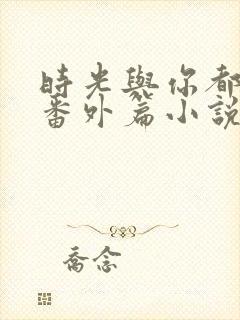 時光與你都
番外篇小說
喬念